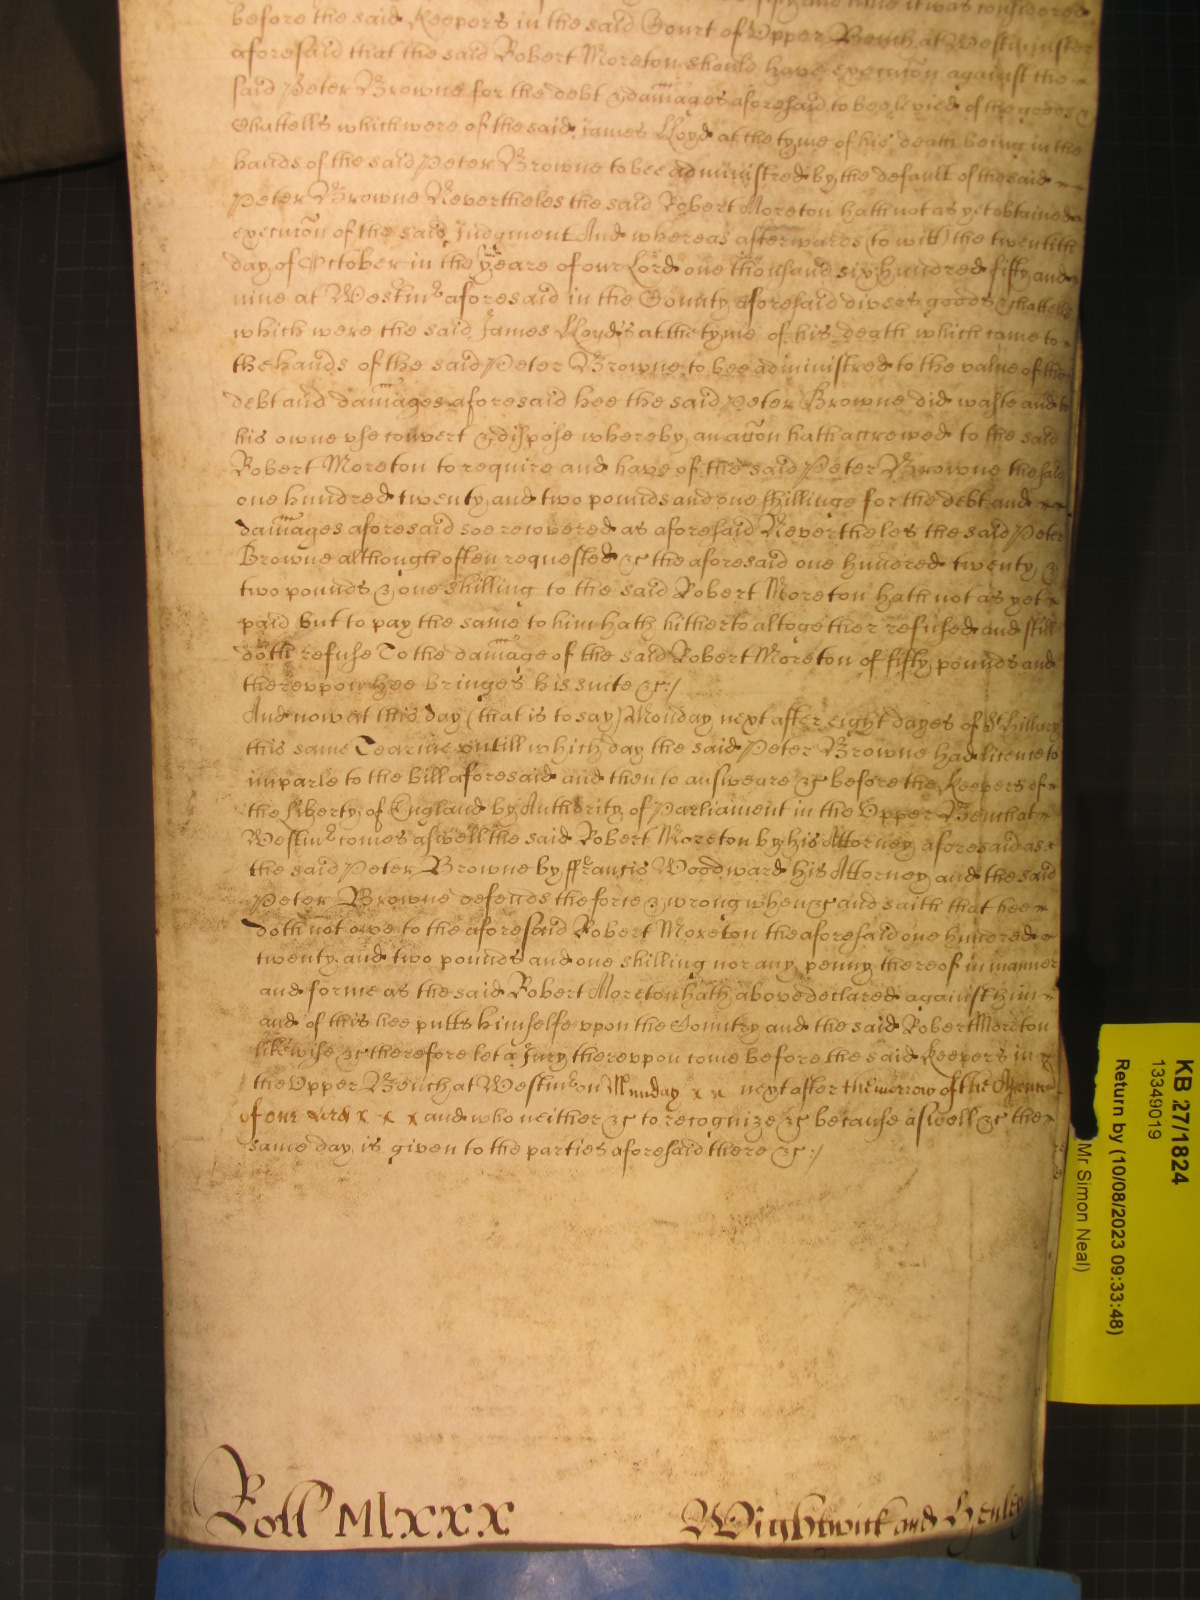 fifty and nine it was considered
before the said Keepers in the said Court of Upper Bench at Westminster
aforesaid that the said Robert Moreton should have execucõn against the
said Peter Browne for the debt & damages aforesaid to bee levied of the goods &
Chattells which were of the said James Lloyd at the tyme of his death being in the
hands of the said Peter Browne to bee administred by the default of the said
Peter Browne Nevertheles the said Robert Moreton hath not as yet obtained
execucõn of the said Judgment And whereas afterwards (to witt) the twentith
day of October in the said yeare of our Lord one thousand six hundred fifty and
nine at Westmr aforesaid in the County aforesaid divers goods & chattells
which were the said James Lloyds at the tyme of his death which came to
the hands of the said Peter Browne to bee administred to the value of the
debt and damages aforesaid hee the said Peter Browne did waste and to
his owne vse convert & dispose whereby an accõn hath accrewed to the said
Robert Moreton to require and have of the said Peter Browne the said
one hundred twenty and two pounds and one shillinge for the debt and
damages aforesaid soe recovered as aforesaid Nevertheles the said Peter
Browne although often requested &c the aforesaid one hundred twenty &
two pounds & one shilling to the said Robert Moreton hath not as yet
paid but to pay the same to him hath hitherto altogether refused and still
doth refuse To the damage of the said Robert Moreton of fifty pounds and
therevpon hee bringes his suite &c:/
And now at this day (that is to say) Monday next after eight dayes of St Hillary
this same Tearme vntill which day the said Peter Browne had licence to
imparle to the bill aforesaid and then to answeare &c before the Keepers of
the liberty of England by Authority of Parliament in the Vpper Bench at
Westmr comes aswell the said Robert Moreton by his Attorney aforesaid as
the said Peter Browne by ffrancis Woodward his Attorney and the said
Peter Browne defends the force & wrong when &c and saith that hee
doth not owe to the aforesaid Robert Moreton the aforesaid one hundred
twenty and two pounds and one shilling nor any penny thereof in manner
and forme as the said Robert Moreton hath above declared against him
and of this hee putts himselfe vpon the Country and the said Robert Moreton
likewise &c therefore let a Jury therevpon come before the said Keepers in
the Vpper Bench at Westmr on Munday x x next after the morrow of the
of our Lord x x x and who neither &c to recognize &c because aswell &c the
same day is given to the parties aforesaid there &c:/
Roll Mlxxx
Wightwick and Henley
KB 27/1824
13349019
Return by (10/08/2023 09:33:48)
Mr Simon Neal)